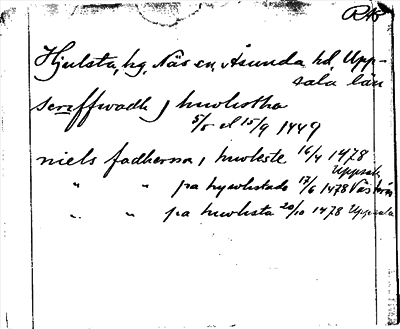 Hjulsta, hg, Näs sn, Åsunda hd, Upp-
sala län
screffwadh j hiwlestha
5/5 el 15/9 1449
niels fadhersson, hiwleste 16/4 1478
Uppsala
" " pa hywlestade 17/6 1478 Västerås
" " pa hiwlesta 20/10 1478 Uppsala